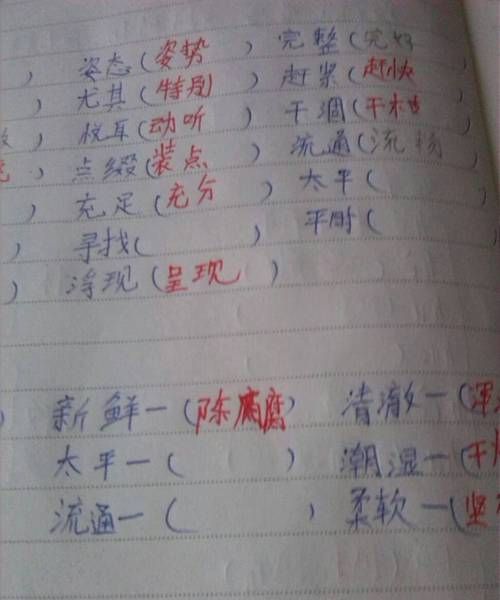 ) 姿态(姿势) 完整(完好
) 尤其(特别) 赶紧(赶快
) 悦耳(动听) 干涸(干枯)
) 点缀(装点) 流通(流畅)
) 充足(充分) 太平( )
) 寻找( ) 平时( )
) 浮现(呈现)
) 新鲜一(陈腐) 清澈一(浑
太平一( ) 潮湿一(干
流通一( ) 柔软一(坚